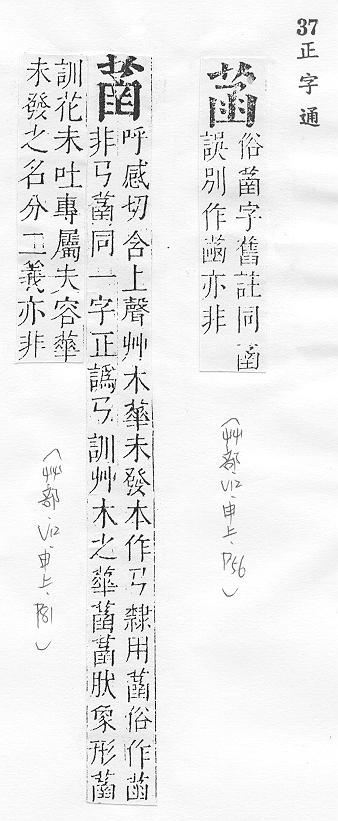 37正字通
菡
俗䓿字舊註同
誤別作亦非
(艸部.V12.申上.P56)
䓿
呼感切含上聲艸木華未發本作𢎘隸用䓿俗作菡
非𢎘䓿同一字正譌𢎘訓艸木之華䓿䓿狀象形䓿
訓花未吐專屬夫容華
未發之名分二義亦非
(艸部.V12.申上.P81)